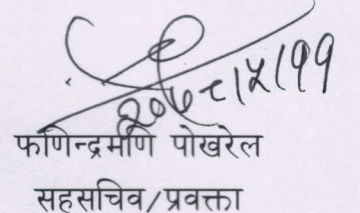 २०७८/५/११
फणिन्द्रमणि पोखरेल
सहसचिव/प्रवक्ता